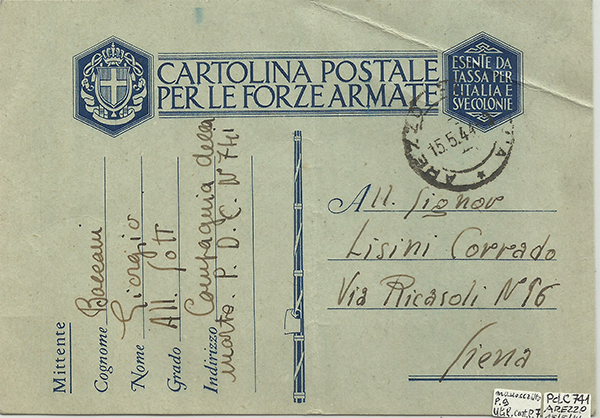 CARTOLINA POSTALE
PER LE FORZE ARMATE
ESENTE DA
TASSA PER
L'ITALIA E
SVE COLONIE
AREZZO
15.5.44
All. Signor
Lisini Corrado
Via Ricasoli N° 96
Siena
Mittente
Cognome Baccani
Nome Giorgio
Grado All. Sott
Indirizzo Compagnia della
Morte. P. D. C. N° 741
manoscritto
P.9
PdC 741
AREZZO